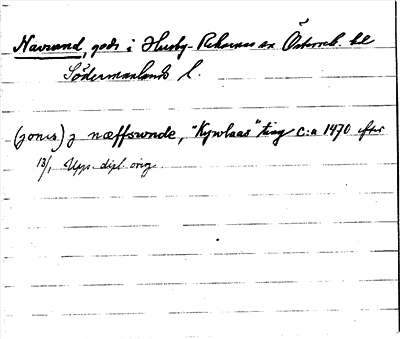 Navsund, gods i Husby-Rekarnes sn Österrek. hd
Södermanlands l.
(jons) j næffswnde, "Kywlaas" ting c:a 1470 efter
13/1 Upps. dipl. orig.